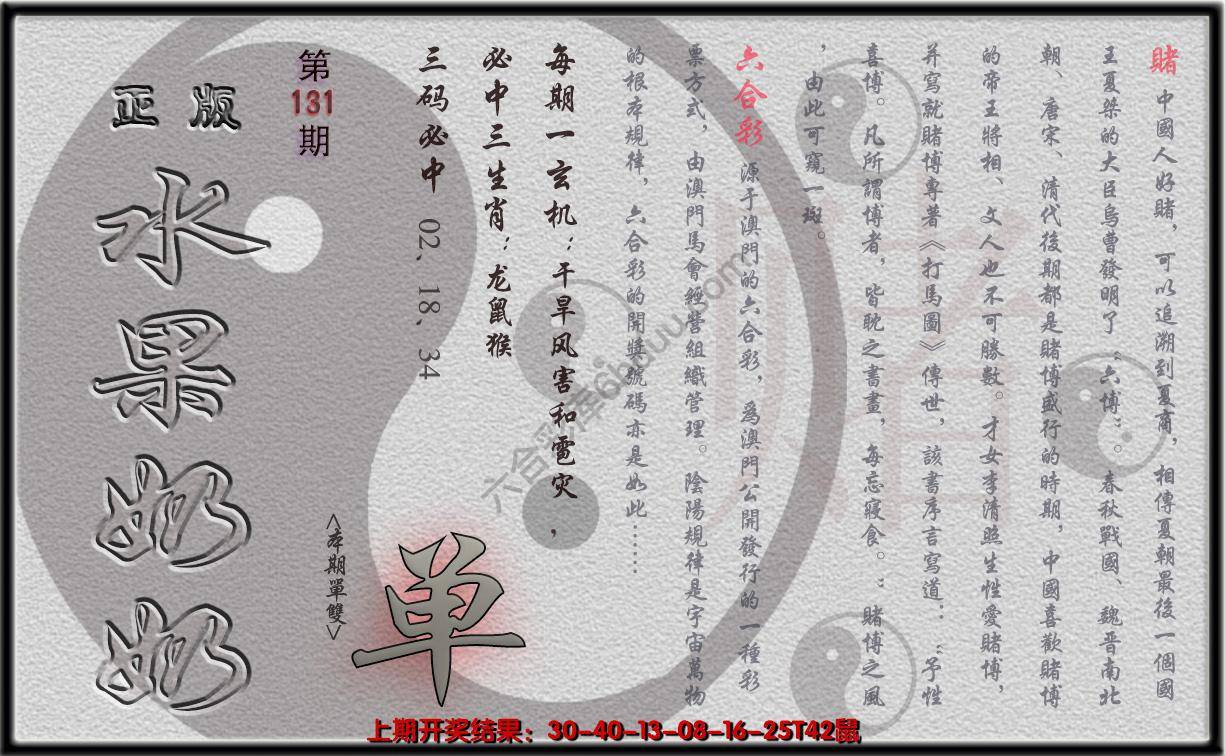 賭 中國人好賭，可以追溯到夏商，相傳夏朝最後一個國
王夏桀的大臣烏曹發明了“六博”。春秋戰國、魏晋南北
朝、唐宋、清代後期都是賭博盛行的時期，中國喜歡賭博
的帝王將相、文人也不可勝數。才女李清照生性愛賭博，
并寫就賭博專著《打馬圖》傳世，該書序言寫道：“予性
喜博。凡所謂博者，皆耽之書晝，每忘寢食。”賭博之風
，由此可窺一斑。
六合彩 源于澳門的六合彩，爲澳門公開發行的一種彩
票方式，由澳門馬會經營組織管理。陰陽規律是宇宙萬物
的根本規律，六合彩的開獎號碼亦是如此……
每期一玄机：干旱风害和雹灾，
必中三生肖：龙鼠猴
三码必中 02、18、34
第
131
期
<本期單雙>
单
正版
水果奶奶
上期开奖结果：30-40-13-08-16-25T42鼠